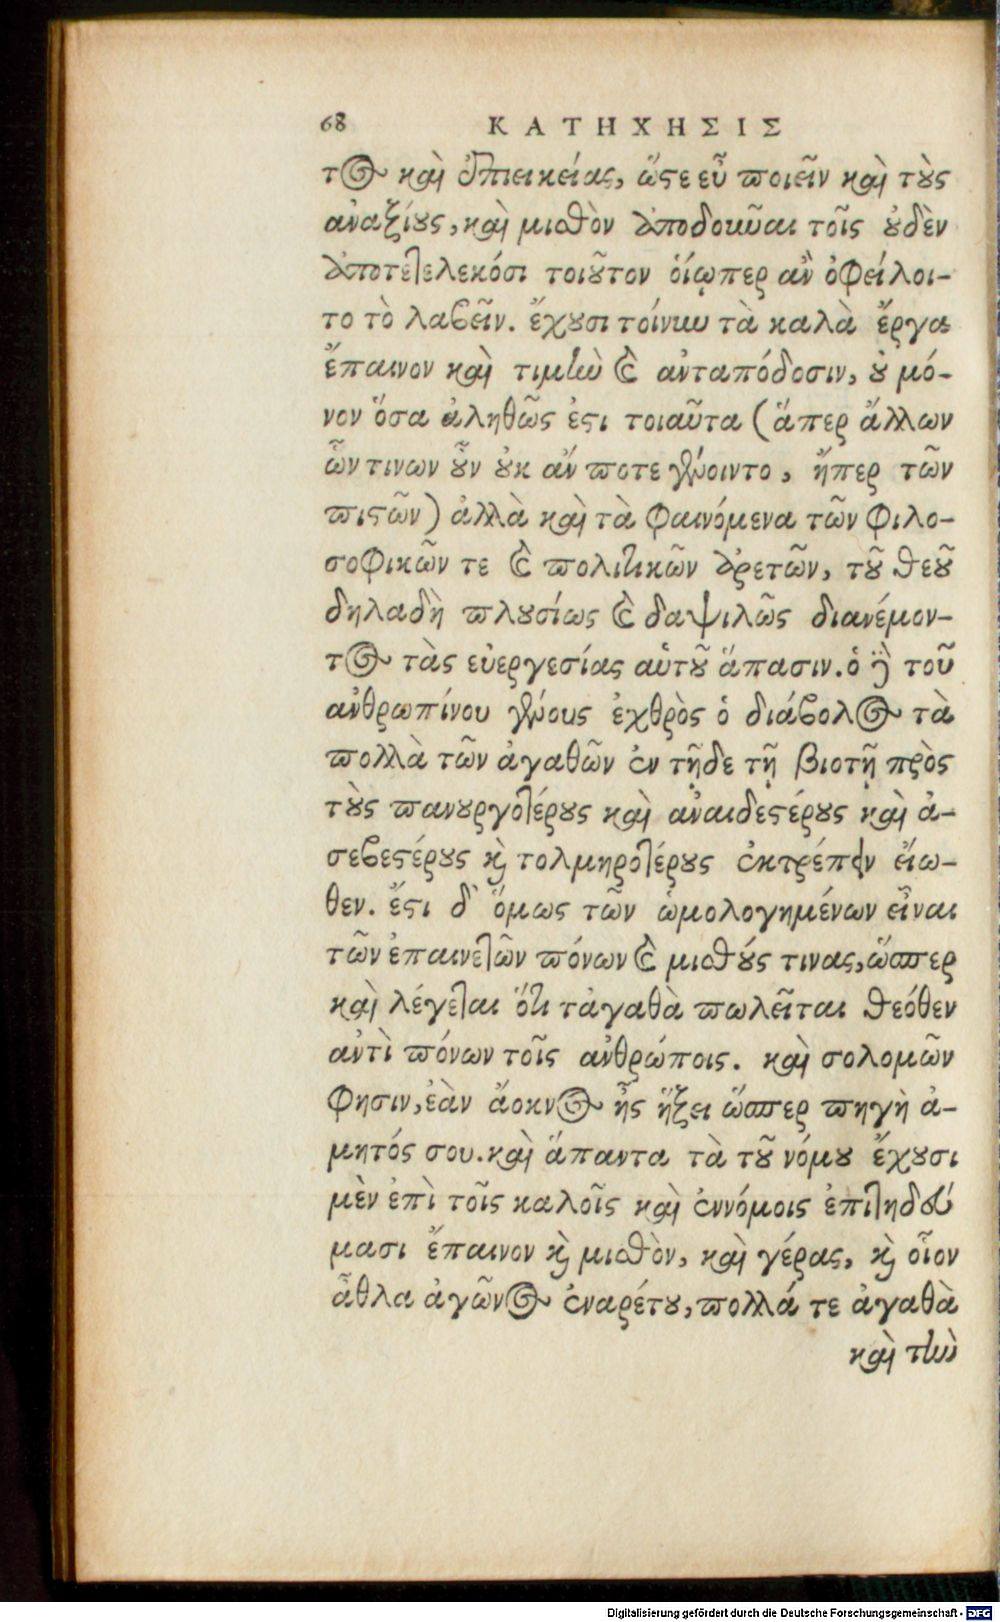 68 ΚΑΤΗΧΗΣΙΣ
τος καὶ ἐπιεικείας, ὥςε εὖ ποιεῖν καὶ τȣ̀ς
ἀναξίȣς, καὶ μισθὸν ἀποδοιῦαι τοῖς ȣ̓δὲν
ἀποτετελεκόσι τοιȣ͂τον οἵῳπερ ἂν ὀφείλοι-
το τὸ λαβεῖν. ἔχȣσι τοίνυν τὰ καλὰ ἔργα
ἔπαινον καὶ τιμὴν καὶ ἀνταπόδοσιν, ȣ̓ μό-
νον ὅσα ἀληθῶς ἐςι τοιαῦτα (ἅπερ ἄλλων
ὧν τινων ȣ͂̓ν ȣ̓κ ἄν ποτε γένοιντο, ἤπερ τῶν
πιςῶν) ἀλλὰ καὶ τὰ φαινόμενα τῶν φιλο-
σοφικῶν τε καὶ πολιτικῶν ἀρετῶν, τȣ͂ θεȣ͂
δηλαδὴ πλȣσίως καὶ δαψιλῶς διανέμον-
τος τὰς εὐεργεσίας αὑτȣ͂ ἅπασιν. ὁ γὰρ τοῦ
ἀνθρωπίνου γένους ἐχθρὸς ὁ διάβολος τὰ
πολλὰ τῶν ἀγαθῶν ἐν τῇδε τῇ βιοτῇ πρὸς
τȣ̀ς πανȣργοτέρȣς καὶ ἀναιδεςέρȣς καὶ ἀ-
σεβεςέρȣς καὶ τολμηροτέρȣς ἐκτρέπειν εἴω-
θεν. ἔςι δ᾽ ὅμως τῶν ὡμολογημένων εἶναι
τῶν ἐπαινετῶν πόνων καὶ μισθȣ́ς τινας, ὥσπερ
καὶ λέγεται ὅτι τἀγαθὰ πωλεῖται θεόθεν
ἀντὶ πόνων τοῖς ἀνθρώποις. καὶ σολομῶν
φησιν, ἐὰν ἄοκνος ᾖς ἥξει ὥσπερ πηγὴ ἀ-
μητός σου. καὶ ἅπαντα τὰ τȣ͂ νόμȣ ἔχȣσι
μὲν ἐπὶ τοῖς καλοῖς καὶ ἐννόμοις ἐπιτηδεύ
μασι ἔπαινον καὶ μισθὸν, καὶ γέρας, καὶ οἷον
ἆθλα ἀγῶνος ἐναρέτȣ, πολλά τε ἀγαθὰ
καὶ τὴν
Digitalisierung gefördert durch die Deutsche Forschungsgemeinschaft - DFG